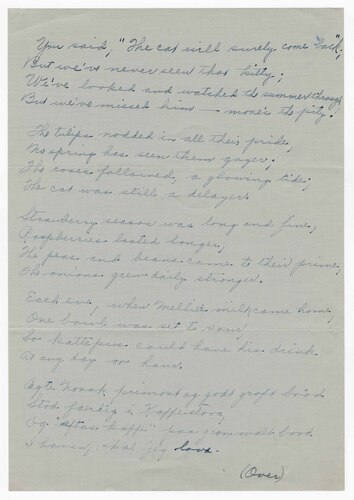 You said, "The cat will surely come back",
But we've never seen that kitty;
We've looked and watched the summer through
But we've missed him — more's the pity.
The tulips nodded in all their pride,
No spring has seen them gayer;
The roses followed, a glowing tide;
The cat was still a delayer.
Strawberry season was long and fine,
Raspberries lasted longer,
The peas and beans came to their prime,
The onions grew daily stronger.
Each eve, when Mellie's milk came home,
One bowl was set to sour,
So Kattepus could have his drink
At any day or hour.
Agte Norsk primost og godt groft brød
Stod færdig i Kaffistova
Og kaffe paa bord
I haven, skal jeg love.
(Over)